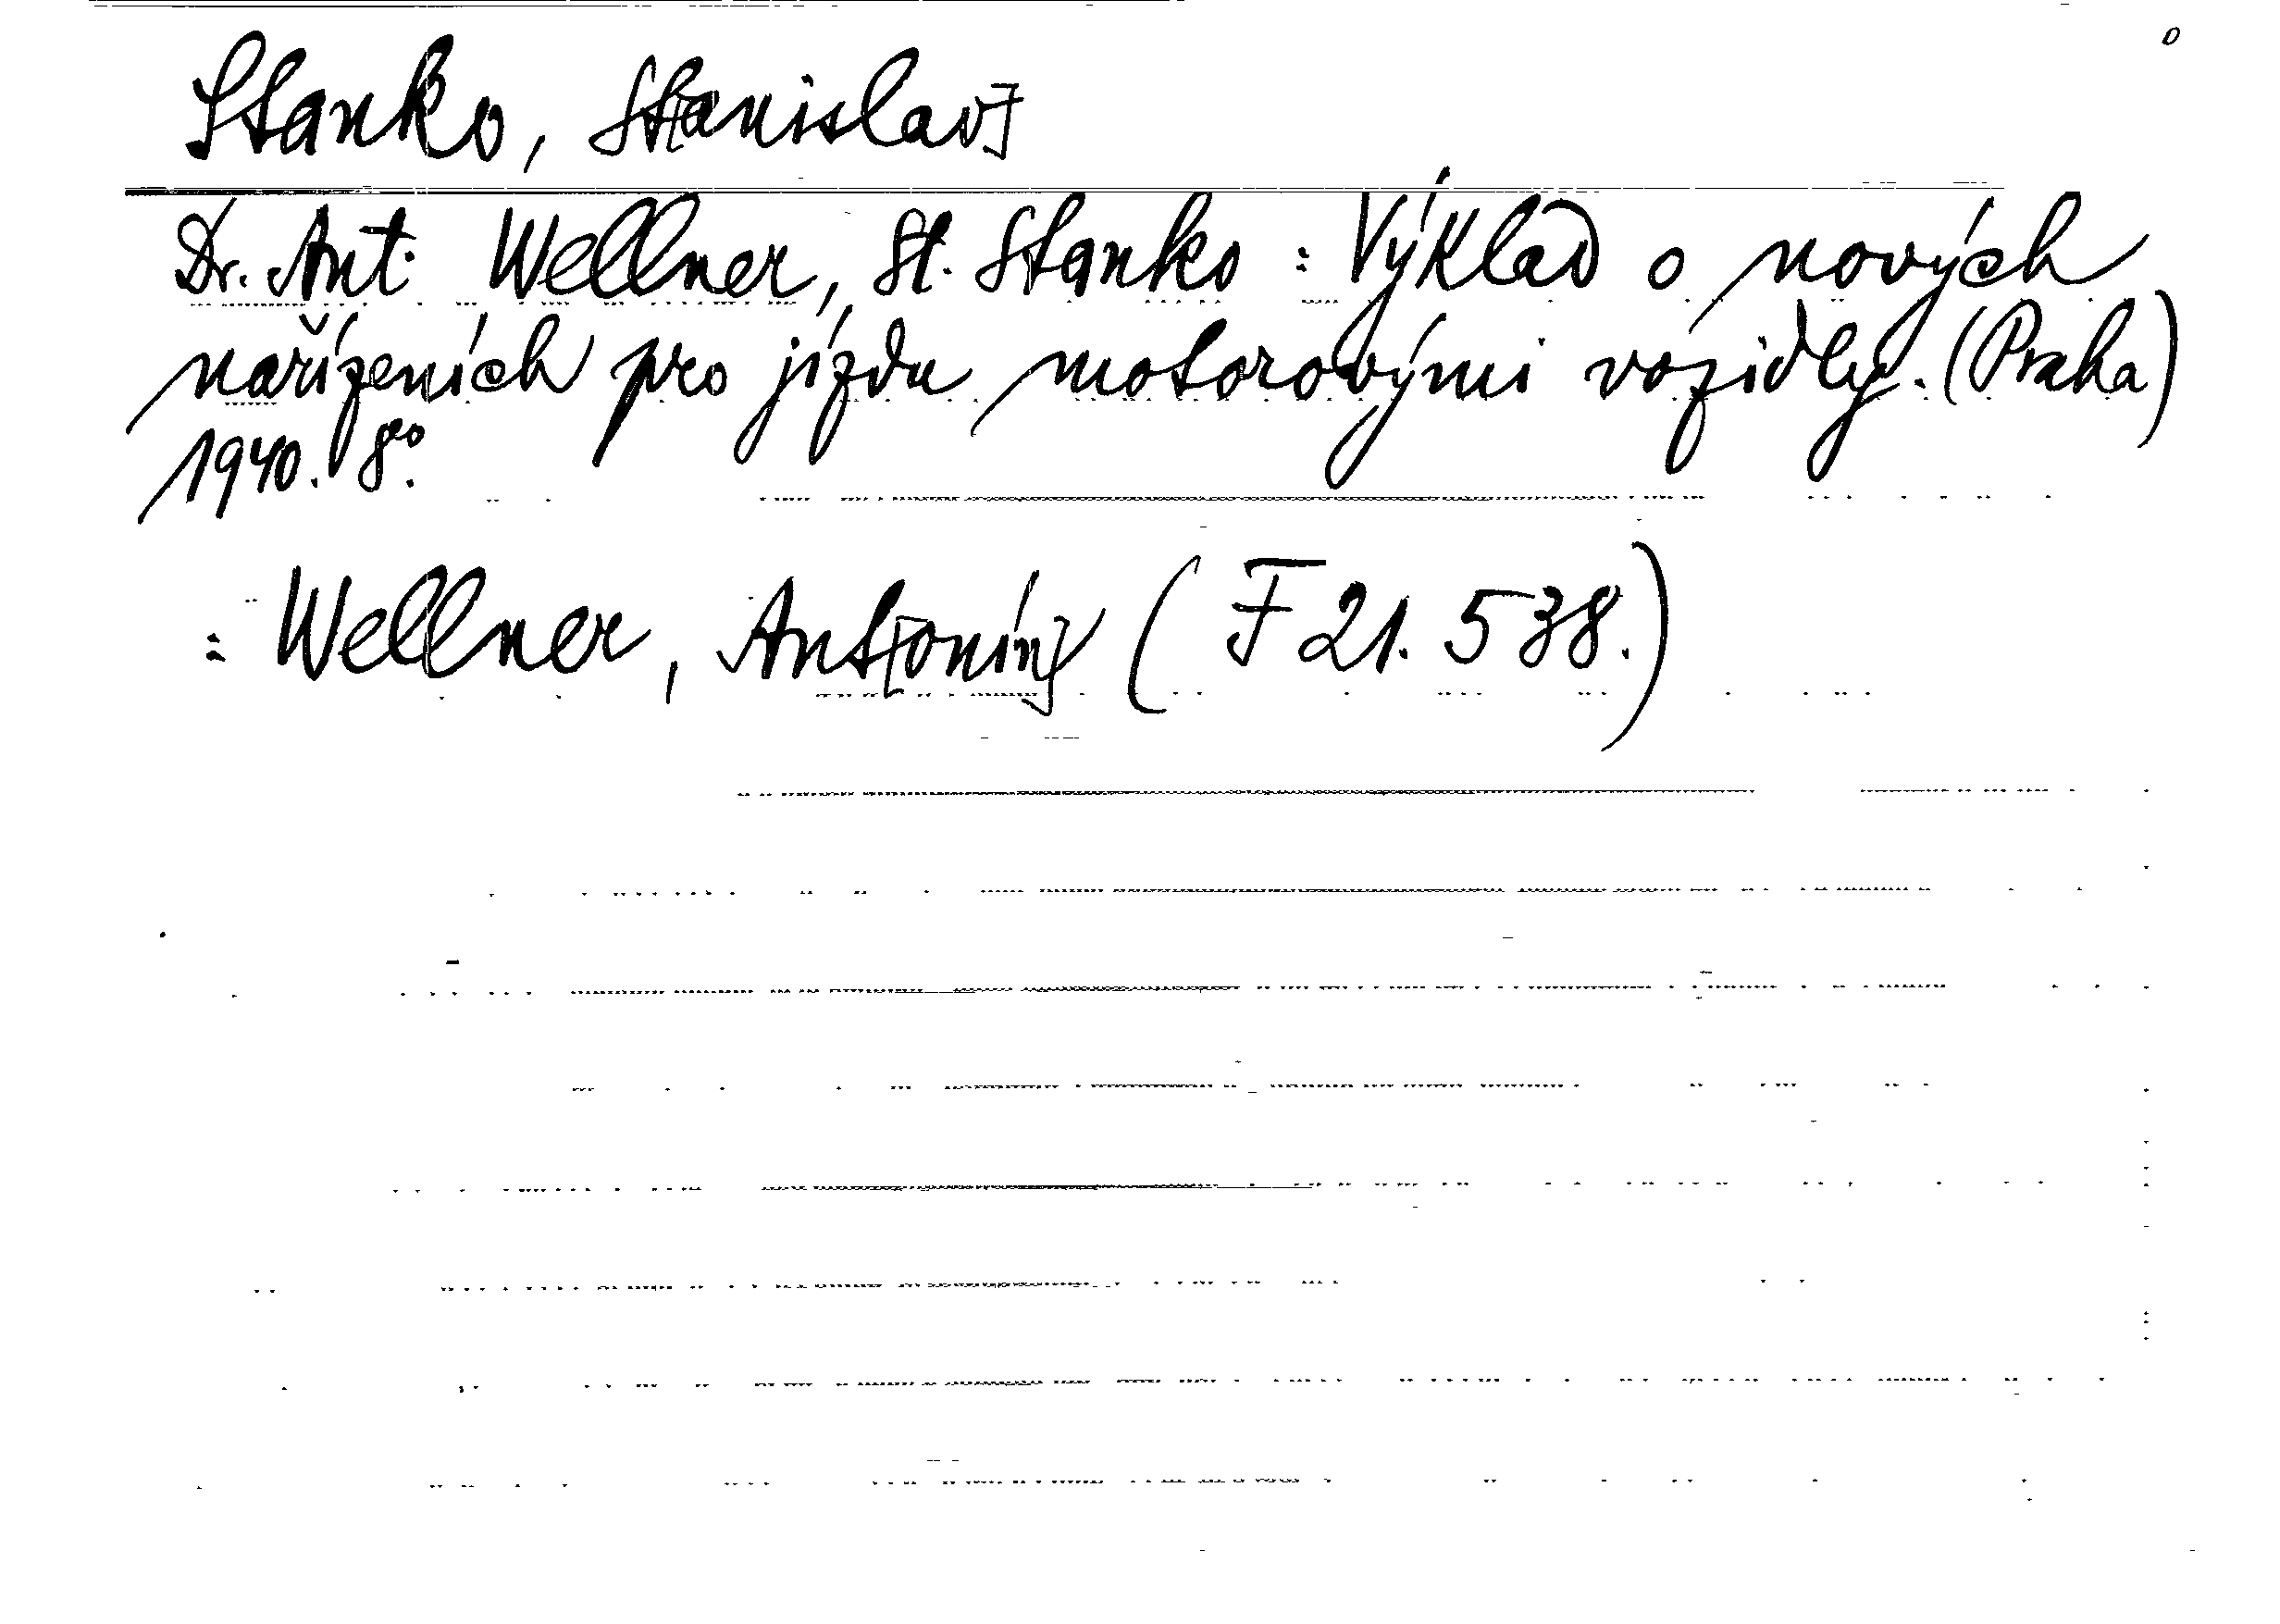 Stanko, St[anislav]
Dr. Ant. Wellner, St. Stanko : Výklad o nových
nařízeních pro jízdu motorovými vozidly. (Praha)
1940. 8°.
= Wellner, Ant[onín] (F 21. 538.)